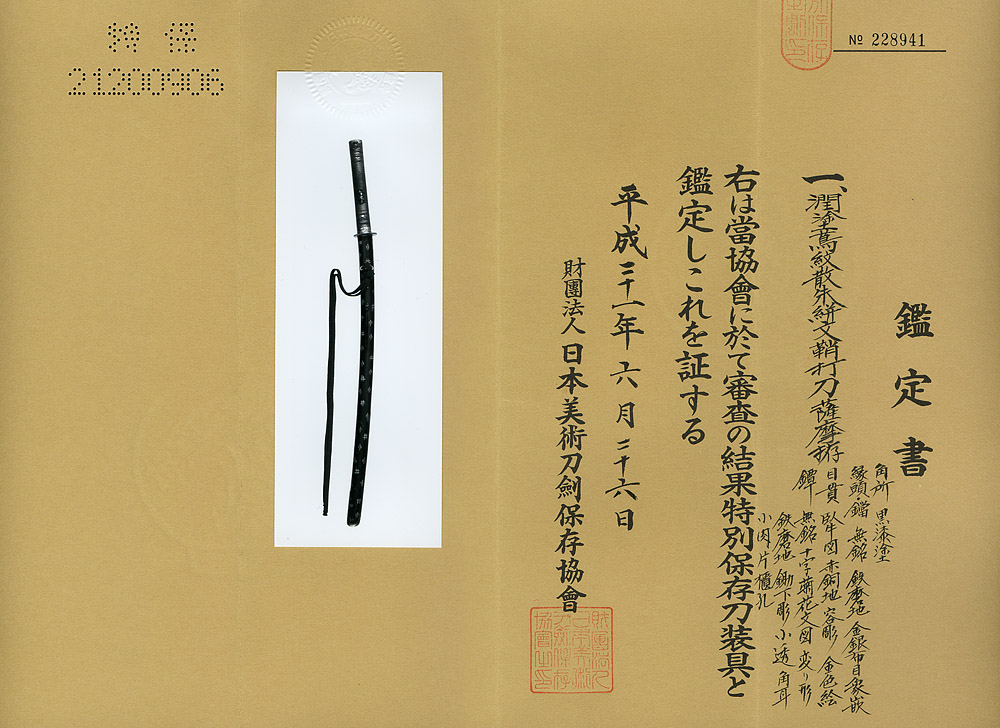 特 保
21200906
№ 228941
鑑定書
一、潤塗蔦紋散朱絣文鞘打刀薩摩拵
角所 黒漆塗
縁頭・鐺 無銘 鉄磨地 金銀布目象嵌
目貫 臥牛図 赤銅地 容彫 金色絵
鐔 無銘 十字菊花文図 変り形
鉄磨地 鋤下彫 小透 角耳
小肉 片櫃孔
右は當協會に於て審査の結果特別保存刀装具と
鑑定しこれを証する
平成二十一年六月二十六日
財團法人 日本美術刀劍保存協會